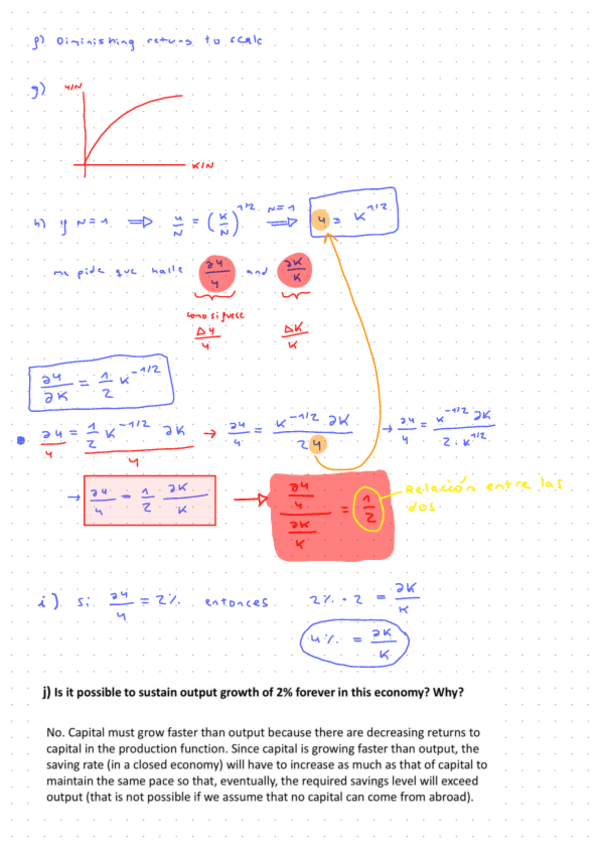 f) Diminishing returns to scale
g) Y/N
K/N
h) If N=1 ⇒ Y/N = (K/N)^1/2 N=1 ⇒ Y = K^1/2
me pide que halle ∂Y/Y and ∂K/K
como si fuese
ΔY/Y ΔK/K
∂Y/∂K = 1/2 K^-1/2
• ∂Y/Y = 1/2 K^-1/2 ∂K/Y → ∂Y/Y = K^-1/2 · ∂K / 2Y → ∂Y/Y = K^-1/2 ∂K / 2 · K^1/2
→ ∂Y/Y = 1/2 ∂K/K → (∂Y/Y)/(∂K/K) = 1/2 Relación entre las
dos
i) Si ∂Y/Y = 2% entonces 2% · 2 = ∂K/K
4% = ∂K/K
j) Is it possible to sustain output growth of 2% forever in this economy? Why?
No. Capital must grow faster than output because there are decreasing returns to
capital in the production function. Since capital is growing faster than output, the
saving rate (in a closed economy) will have to increase as much as that of capital to
maintain the same pace so that, eventually, the required savings level will exceed
output (that is not possible if we assume that no capital can come from abroad).